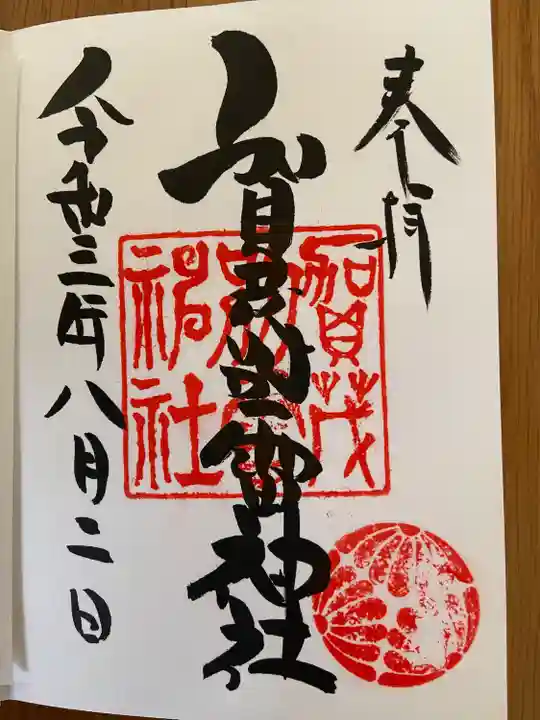 奉拝
賀茂別雷神社
賀茂
別雷
神社
令和三年八月二日